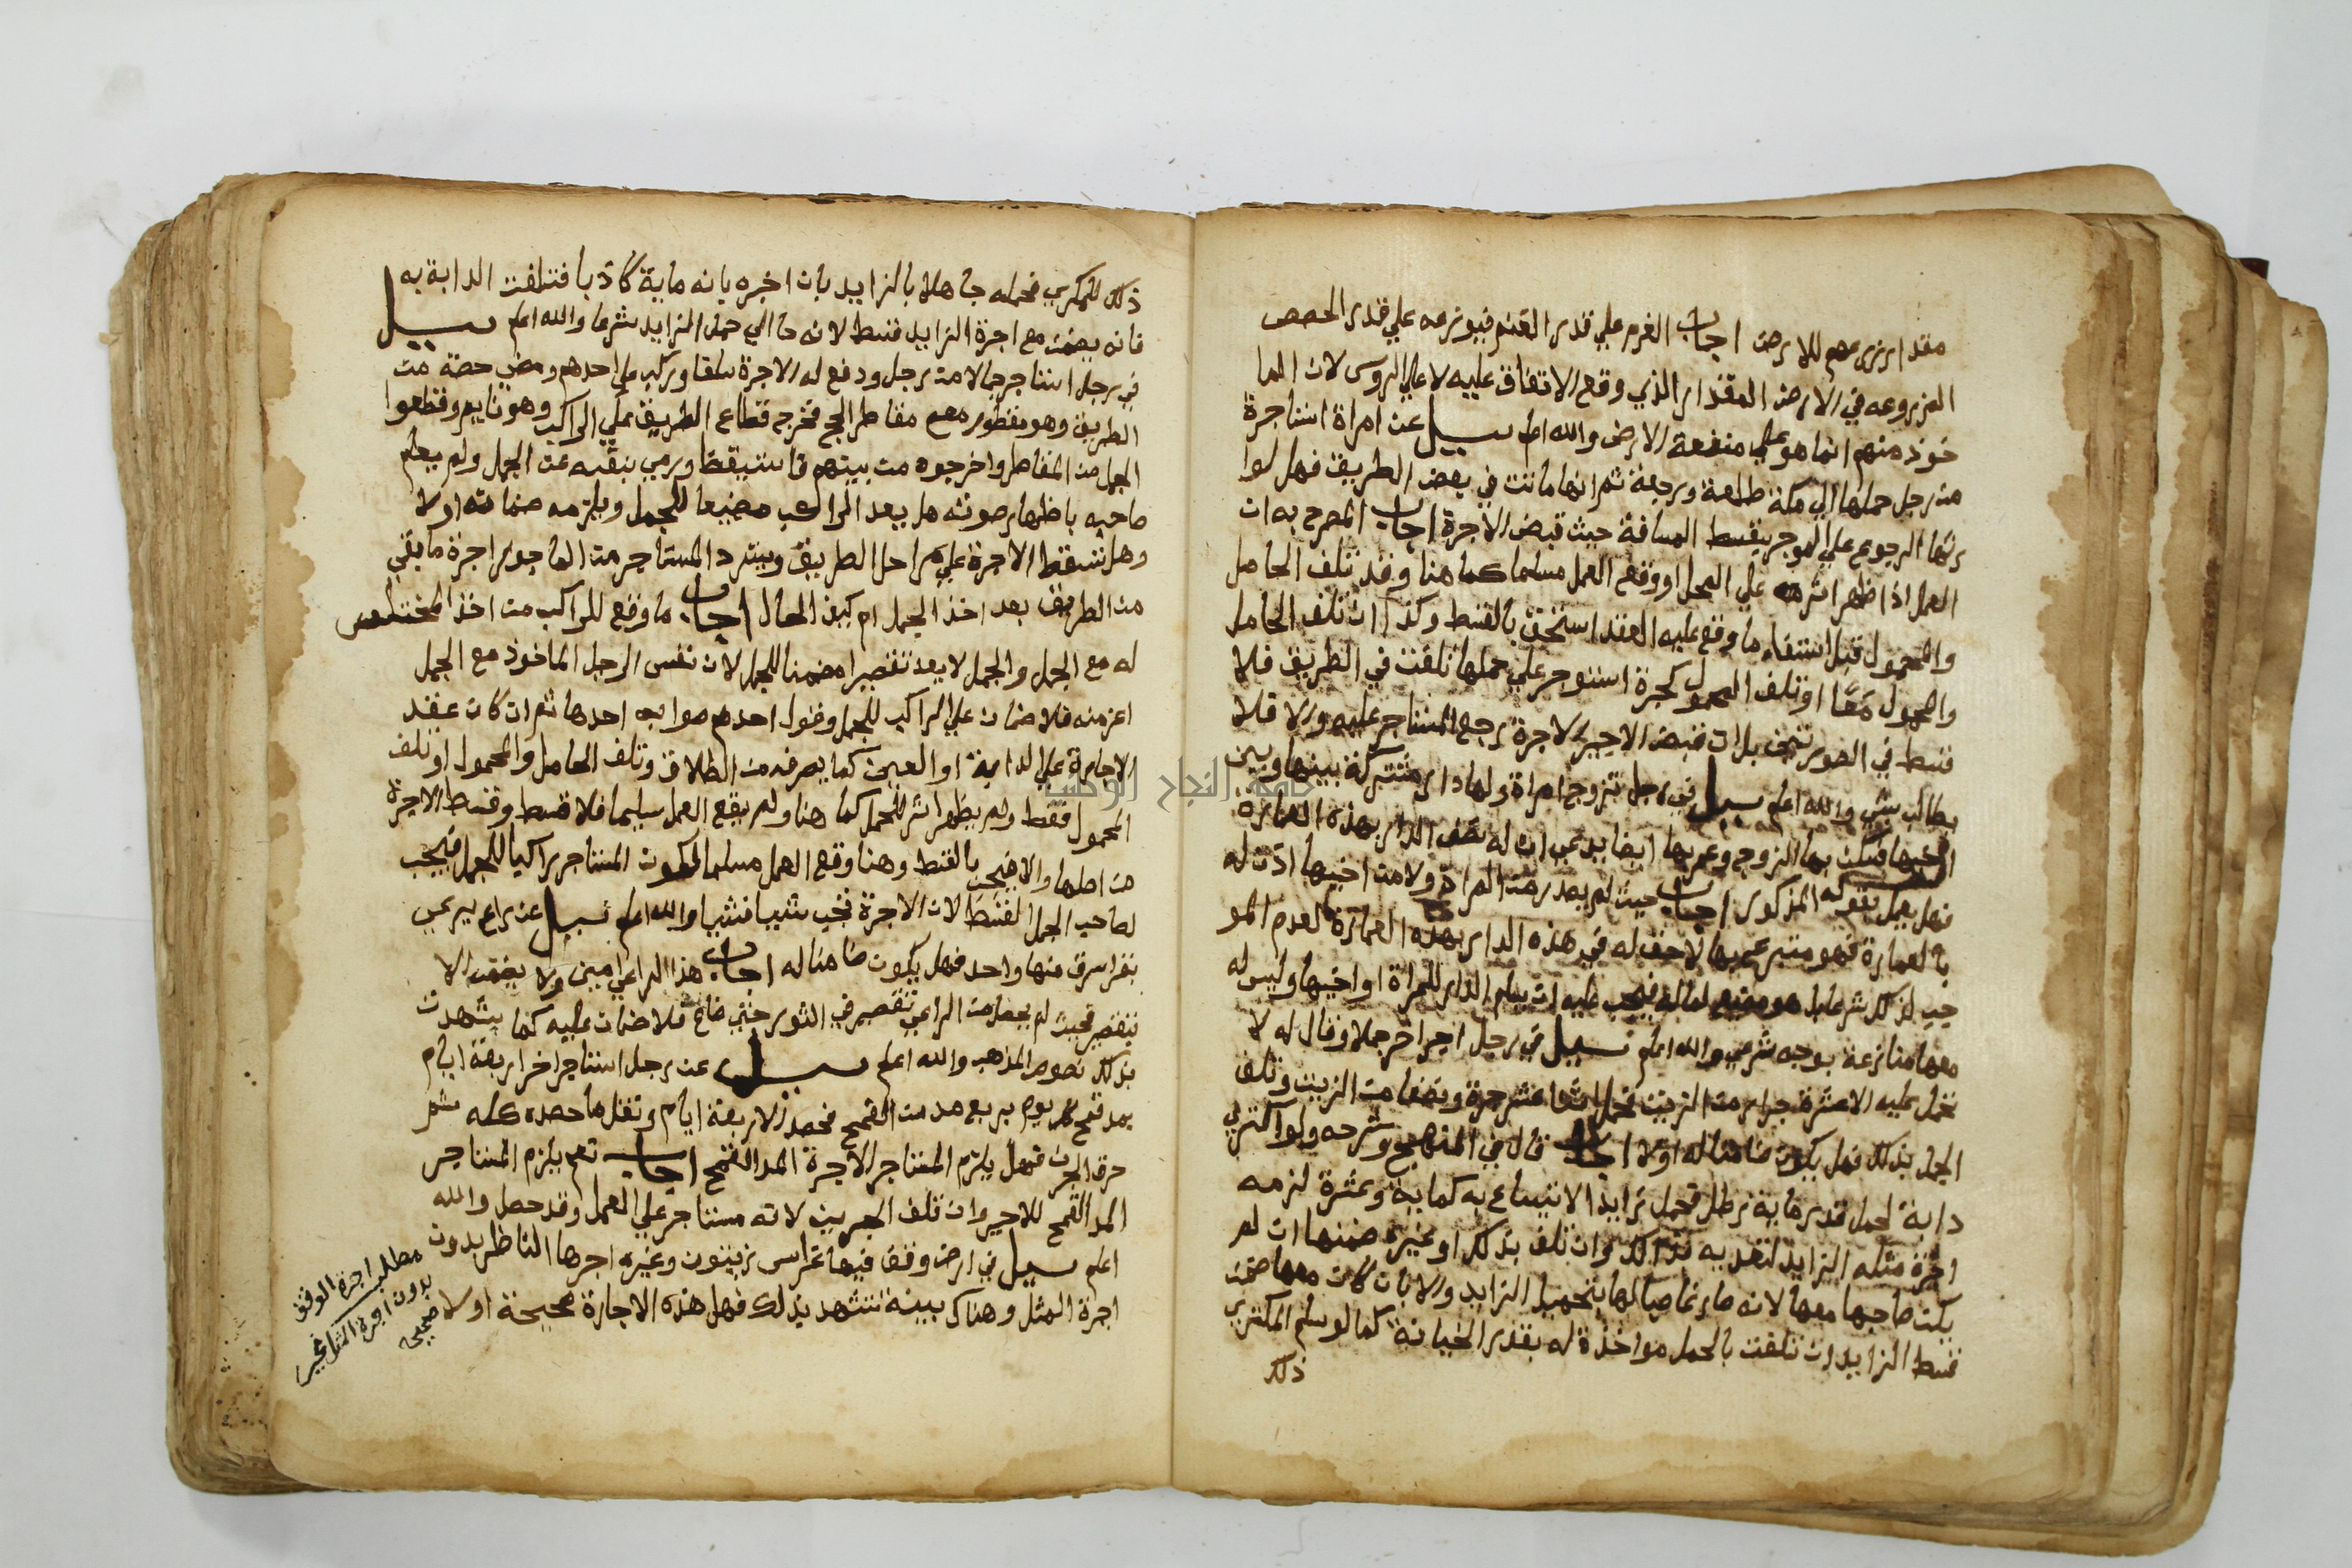 مقدار زرعهم للارض اجاب الغرم علي قدر الغنم فيوزعه علي قدر الحصص
المزروعه في الارض المقدار الذي وقع الاتفاق عليه لا علي الروس لان الما
خوذ منهم انما هو علي منفعة الارض والله اعلم سيل عن امراة استاجرة
من رجل حملها الي مكة طلعة ورجعة ثم انها ماتت في بعض الطريق فهل لوا
رثها الرجوع علي الموجر بقسط المسافة حيث قبض الاجرة اجاب المصرح به ان
العمل اذا ظهر اثره علي المحل او وقع العمل مسلما كما هنا وقد تلف الحامل
والمحمول قبل استيفاء ما وقع عليه العقد استحق بالقسط وكذا ان تلف الحامل
والمحمول معا او تلف المحمول كجرة استوجر علي حملها تلفت في الطريق فلا
قسط في الصورتين بل ان قبض الاجير الاجرة رجع المستاجر عليه والا فلا
يطالب بشي والله اعلم سيل في رجل تزوج امراة ولها دار مشتركة بينها وبين
اخيها فسكن بها الزوج وعمر بها ايضا يدعي ان له نصف الدار بهذه العمارة
فهل يعمل بقوله المذكور اجاب حيث لم يصدر من المراة ولا من اخيها اذن له
بالعمارة فهو متبرع بها لا حق له في هذه الدار بهذه العمارة لعدم المو
جب لذلك شرعا بل هو مضيع لماله فيجب عليه ان يسلم الدار للمراة او اخيها وليس له
معها منازعة بوجه شرعي والله اعلم سيل في رجل اجر اخر جملا وقال له لا
تحمل عليه الا عشرة جرار من الزيت فحمل اثنا عشر جرة ونصفا من الزيت وتلف
الجمل بذلك فهل يكون ضامنا له اولا اجاب قال في المنهج وشرحه ولو اكتري
دابة لحمل قدر ماية رطل فحمل زايدا لا يتسامح به كماية وعشرة لزمه
اجرة مثله الزايد لتعديه بذلك وان تلف بذلك او غيره ضمنها ان لم
يكن صاحبها معها لانه صار غاصبا لها بتحميل الزايد والا بان كان معها ضمن
قسط الزايد ان تلفت بالحمل مواخذة له بقدر الخيانة كما لو سلم المكتري
ذلك
ذلك للمكري فحمله جاهلا بالزايد بان اخبره بانه ماية كاذبا فتلفت الدابة به
فانه يضمن مع اجرة الزايد قسط لانه حالي حمل الزايد شرعا والله اعلم سيل
في رجل استاجر جمالا من رجل ودفع له الاجرة سلفا وركب علي احدهم ومضي حصة من
الطريق وهو مقطور معه مقاطر الحج فخرجه قطاع الطريق علي الراكب وهو نايم وقطعوا
الجمل من المقاطر واخرجوه من بينهم فاستيقظ ورمي بنفسه عن الجمل ولم يعلم
صاحبه باظهار صوته هل يعد الراكب مضيعا للجمل ويلزمه ضمانه اولا
وهل تسقط الاجرة علي مراحل الطريق ويسترد المستاجر من الماجور اجرة ما بقي
من الطريق بعد اخذ الجمل ام كيف الحال اجاب ما وقع للراكب من اخذ المختلس
له مع الجمل والجمل لا يعد تقصيرا مضمنا للجمل لان نفس الرجل الماخوذ مع الجمل
اعز منه فلا ضمان علي الراكب للجمل وفول احدهم صوابه احدها ثم ان كان عقد
الاجارة علي الدابة او العين كما يصرفه من الطلاق وتلف الحامل والمحمول او تلف
المحمول فقط ولم يظهر اثر للحمل كما هنا ولم يقع العمل سليما فلا قسط وقسط الاجرة
من اصلها والا فيجب بالقسط وهنا وقع العمل مسلما لكون المستاجر راكبا للجمل فيجب
لصاحب الجمل القسط لان الاجرة تجب شيا فشيا والله اعلم سيل عن راع يرعي
بقرا سرق منها واحد فهل يكون ضامنا له اجاب هذا الراعي امين ولا يضمن الا
بتقصير فحيث لم يحصل من الراعي تقصير في الثور حتي ضاع فلا ضمان عليه كما يشهد
بذلك نصوص المذهب والله اعلم سيل عن رجل استاجر اخر اربعة ايام
بمد قمح كل يوم بربع مد من القمح فحصد الاربعة ايام ونقل ما حصده كله ثم
حرق الجرن فهل يلزم المستاجر الاجرة المد القمح اجاب نعم يلزم المستاجر
المد القمح للاجير وان تلف الجرين لانه مستاجر علي العمل وقد حصل والله
اعلم سيل في ارض وقف فيها غراس زيتون وغيره اجرها الناظر بدون
اجرة المثل وهناك بينة تشهد بذلك فهل هذه الاجارة صحيحة اولا
مطلب اجرة الوقف
بدون اجرة المثل غير
صحيحه
جامعة النجاح الوطنية